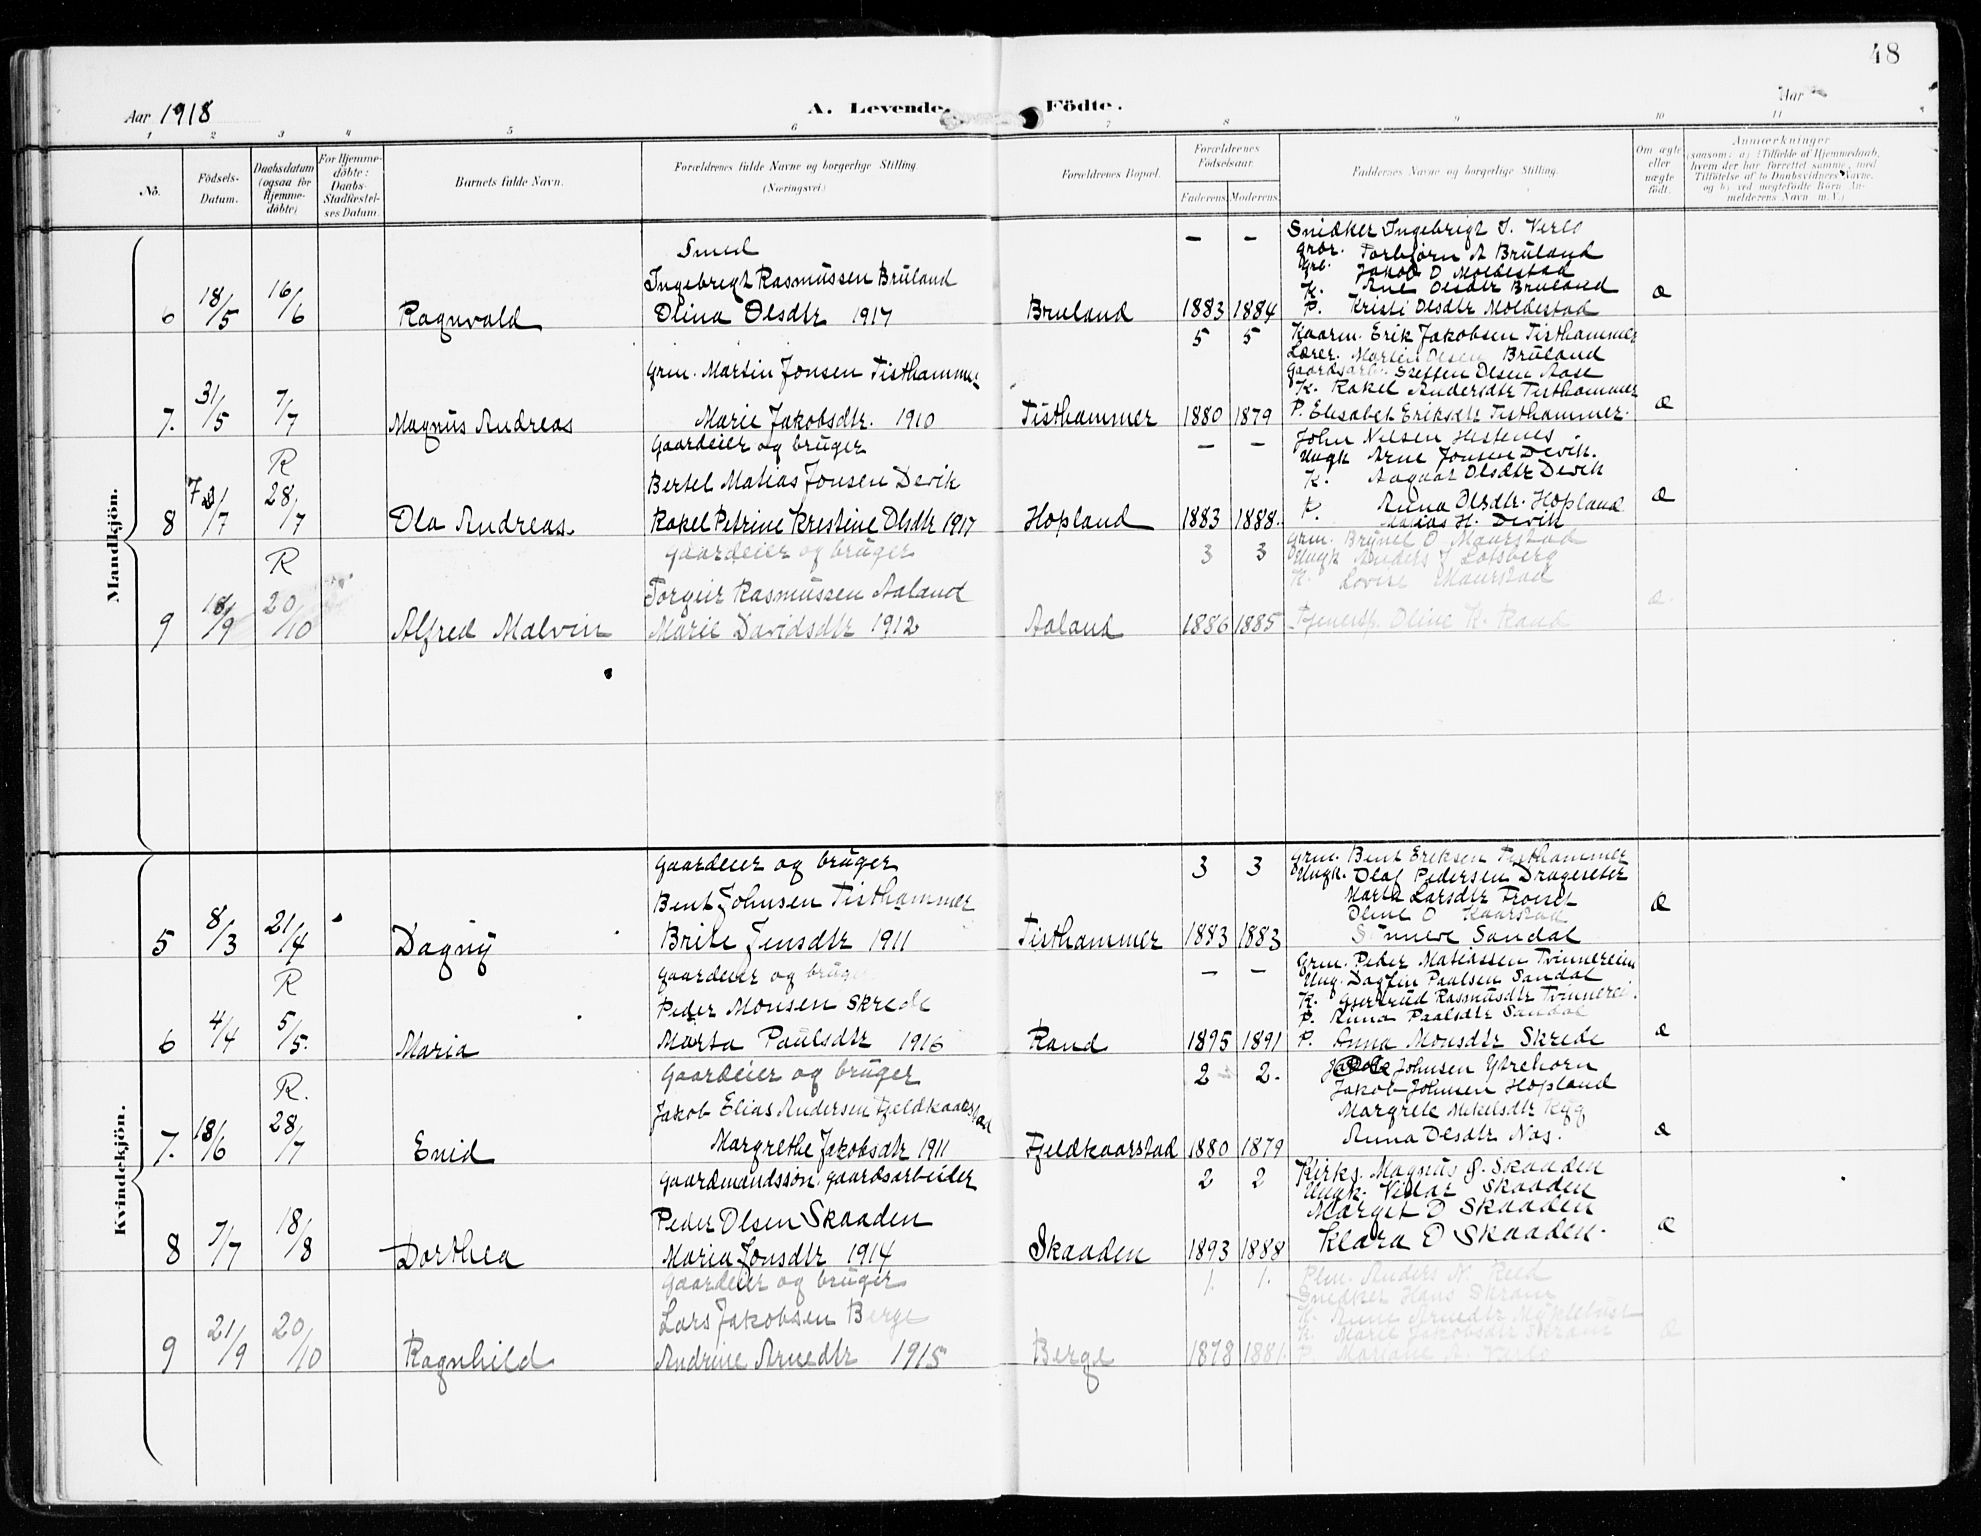 48
Aar 1918
A. Levende Födte.
Aar
1 2 3 4 5 6 7 8 9 10 11
No.
Födsels-Datum.
Daabsdatum (ogsaa for Hjemme-döbte)
For Hjemme-döbte: Daabs Stadfæstel-ses Datum.
Barnets fulde Navn.
Forældrenes fulde Navne og borgerlige Stilling. (Næringsvei)
Forældrenes Bopæl.
Forældrenes Födselsaar.
Faderens Moderens
Faddernes Navne og borgerlige Stilling.
Om ægte eller uægte födt.
Anmærkninger
(saasom: a) i Tilfælde af Hjemmedaab,
hvem der har forrettet samme, med
Tilföielse af to Daabsvidners Navne,
og b) ved uægtefödte Börn An-
melderens Navn m.V.)
Mandkjön.
6 18/5 16/6 Ragnvald
Smed
Ingebrigt Rasmussen Bruland
Olina Olsdtr 1917
Bruland
— —
1883 1884
Snidker Ingebrigt I. Verlo
Torbjørn A Bruland
Jakob O Moldestad
K. Ane Olsdtr Bruland
P. Kristi Olsdtr Moldestad
Æ
7. 31/5 7/7 Magnus Andreas
Grm. Martin Jonsen Tisthammer
Marie Jakobsdtr. 1910
Tisthammer
5 5
1880 1879
Kaarm. Erik Jakobsen Tisthammer
Lærer. Martin Olsen Bruland
Gaardsarb. Steffen Olsen Aase
K. Rakel Andersdtr Tisthammer
P. Elisabet Eriksdtr Tisthammer.
Æ
8 7/7 R 28/7 Ola Andreas.
Gaardeier og bruger
Bertel Matias Jonsen Devik
Rakel Petrine Kristine Olsdtr 1917
Hopland
— —
1883 1888.
John Nilsen Hestenes
Ungk Arne Jonsen Devik.
K. Aagaat Olsdtr Devik
P. Anna Olsdtr. Hopland
Matias H. Devik
Æ
9 18/9 R 20/10 Alfred Malvin
Gaardeier og bruger
Torgeir Rasmussen Aaland
Marie Davidsdtr 1912
Aaland
3 3
1886 1885
Grm. Brynel O Maurstad
Ungk Anders J Lotsberg
K. Lovise Maurstad
Tjenersp. Oline K. Rand
Æ.
Kvindekjön.
5 8/3 21/4 Dagny
Gaardeier og bruger
Bent Johnsen Tisthammer
Brite Jensdtr 1911
Tisthammer
3 3
1883 1883
Grm. Bent Eriksen Tisthammer
Ungk. Olaf Pedersen Drageseter
Marta Larsdtr Tronet
Oline O Kaarstad
Synneve Sandal
Æ
6 4/4 R 5/5. Maria
Gaardeier og bruger
Peder Monsen Skrede
Marta Paulsdtr 1916
Rand
— —
1895 1891
Grm. Peder Matiassen Tvinnereim
Ung. Dagfin Paulsen Sandal
K. Gjertrud Rasmusdtr Tvinnerei.
P. Anna Paalsdtr Sandal
P. Anna Monsdtr Skrede
Æ
7. 18/6 R. 28/7 Enid
Gaardeier og bruger
Jakob Elias Andersen Fjeldkaarstad
Margrethe Jakobsdtr 1911
Fjeldkaarstad
2 2.
1880 1879
Johnsen Ytrehorn
Jakob Johnsen Hopland
Margrete Mikelsdtr Ryg
Anna Olsdtr Nos.
Æ
8 7/7 18/8 Dorthea
Gaardmandssøn. gaardsarbeider
Peder Olsen Skaaden
Maria Jonsdtr 1914
Skaaden
2 2
1893 1888
Kirks. Magnus J. Skaaden
Ungk. Vidar Skaaden
Margit O Skaaden
Klara O Skaaden.
Æ
9 21/9 20/10 Ragnhild
Gaardeier og bruger
Lars Jakobsen Berge
Andrine Arnedtr 1915
Berge
1. 1.
1878 1881.
Plm. Anders N. Reed
Snedker Hans Skram
K. Anne Arnedtr Myklebust
K. Marie Jakobsdtr Skram
P. Mariane A.
Æ